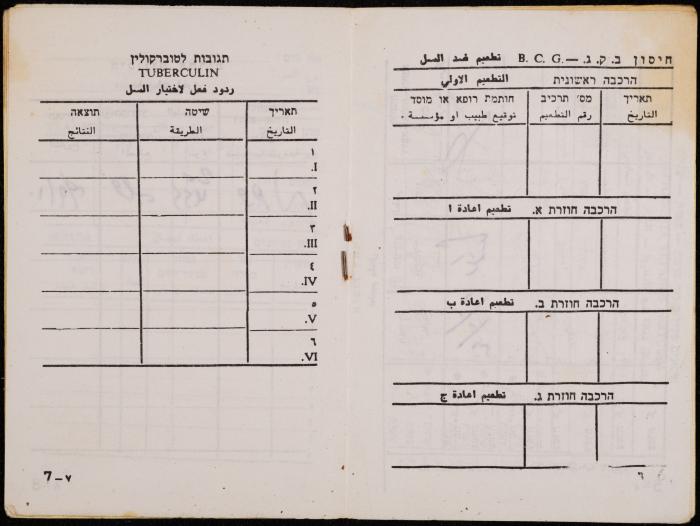 חיסון ב. ק. ג. — B. C. G. تطعيم ضد السل
הרכבה ראשונית التطعيم الاولي
תאריך מס׳ תרכיב חותמת רופא או מוסד
التاريخ رقم التطعيم توقيع طبيب او مؤسسة .
הרכבה חוזרת א. تطعيم اعادة ا
הרכבה חוזרת ב. تطعيم اعادة ب
הרכבה חוזרת ג. تطعيم اعادة ج
٦
תגובות לטוברקולין
TUBERCULIN
ردود فعل لاختبار السل
תאריך שיטה תוצאה
التاريخ الطريقة النتائج
١
I.
٢
II.
٣
III.
٤
IV.
٥
V.
٦
VI.
7–٧